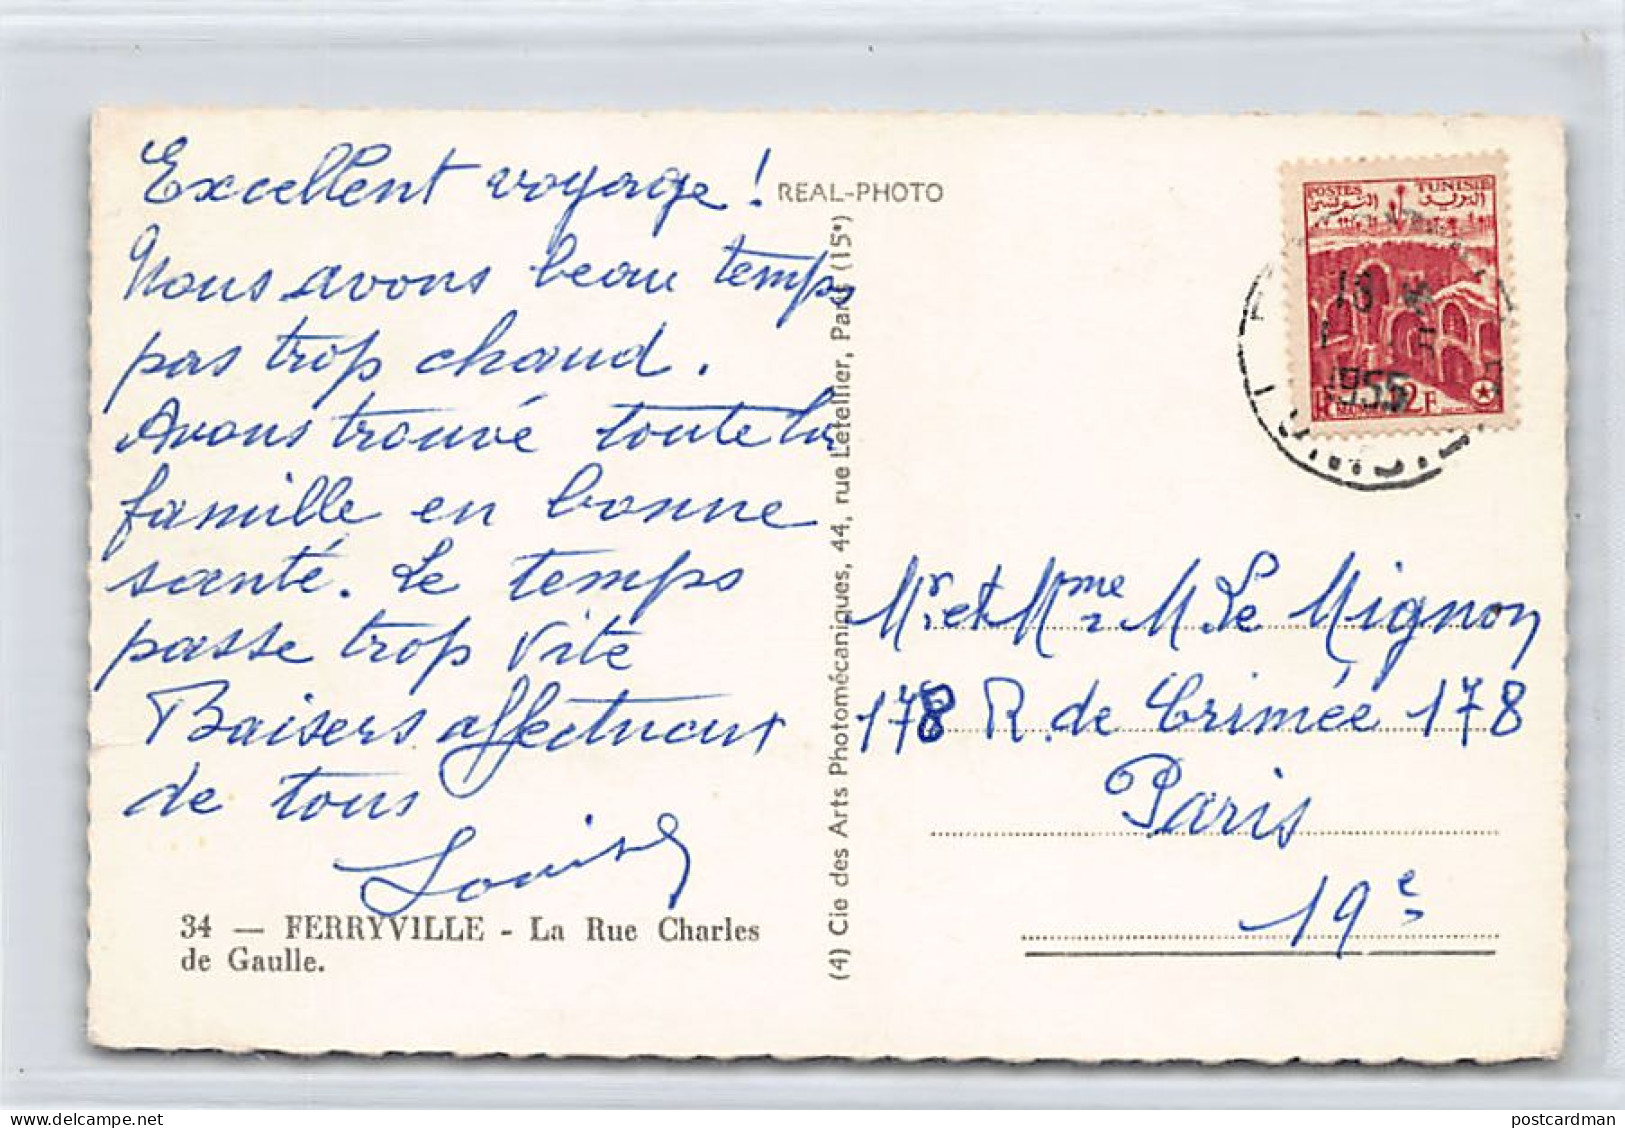 Excellent voyage !
Nous avons beau temps
pas trop chaud.
Avons trouvé toute la
famille en bonne
santé. Le temps
passe trop vite
Baisers affectueux
de tous
34 — FERRYVILLE - La Rue Charles
de Gaulle.
REAL-PHOTO
(4) Cie des Arts Photomécaniques, 44, rue Letellier, Paris (15e)
POSTES TUNISIE
البريد التونسي
12F
16
1955
Mr et Mme M. Le Mignon
178 R. de Crimée 178
Paris
19e
postcardman